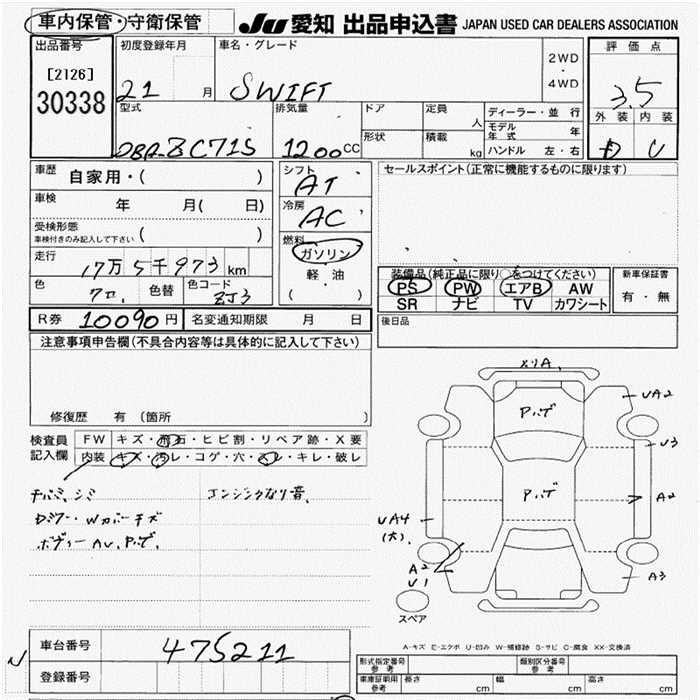 車内保管・守衛保管
JU 愛知 出品申込書 JAPAN USED CAR DEALERS ASSOCIATION
出品番号
[2126]
30338
初度登録年月
21 月
車名・グレード
SWIFT
2WD
・
4WD
評価点
3.5
外装 内装
D
型式
DBA-ZC71S
排気量
1200CC
ドア
形状
定員
人
積載
kg
ディーラー・並行
モデル年式 年
ハンドル 左・右
車歴
自家用・( )
車検
年 月( 日)
受検形態
車検付きのみ記入して下さい ( )
走行
17万5千973km
色 色替 色コード
ZJ3
シフト
AT
冷房
AC
燃料
ガソリン
軽・油
( ・ )
セールスポイント(正常に機能するものに限ります)
装備品(純正品に限り○をつけてください)
PS PW エアB AW
SR ナビ TV カワシート
新車保証書
有・無
後日品
R券 10090円 名変通知期限 月 日
注意事項申告欄(不具合内容等は具体的に記入して下さい)
修復歴 有(箇所 )
検査員
記入欄
FW キズ・飛石・ヒビ割・リペア跡・X要
内装 キズ・汚レ・コゲ・穴・スレ・キレ・破レ
シミ
エンジンうなり音、
Wカバーキズ
ボディー AU、
メリA
UA2
U3
A2
UA4
(大)
A2
U1
A3
スペア
A-キズ E-エクボ U-凹み W-補修跡 S-サビ C-腐食 XX-交換済
車台番号
475211
登録番号
型式指定番号
参考
類別区分番号
参考
車庫証明用
参考
長さ cm 幅 cm 高さ cm